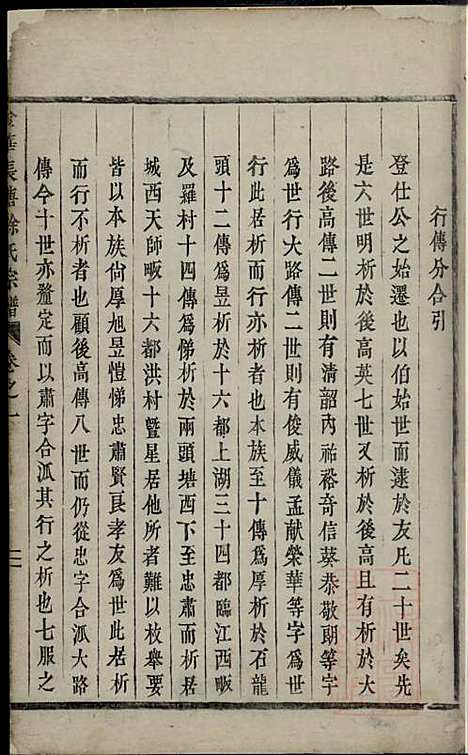 行傳分合引
登仕公之始遷也以伯始世而逮於友凡二十世矣先
是六世明析於後高英七世又析於後高且有析於大
路後高傳二世則有清韶內祐裕奇信葵恭敬朗等字
爲世行大路傳二世則有俊威儀孟献榮華等字爲世
行此居析而行亦析者也本族至十傳爲厚析於石龍
頭十二傳爲昱析於十六都上湖三十四都臨江西畈
及羅村十四傳爲悌析於兩頭塘西下至忠肅而析於
城西天師畈十六都洪村暨星居他所者難以枚舉要
皆以本族尚厚旭昱愷悌忠肅賢良孝友爲世此居析
而行不析者也顧後高傳八世而仍從忠字合派大路
傳今十世亦釐定而以肅字合派其行之析也七服之
長塘徐氏宗譜
卷之一